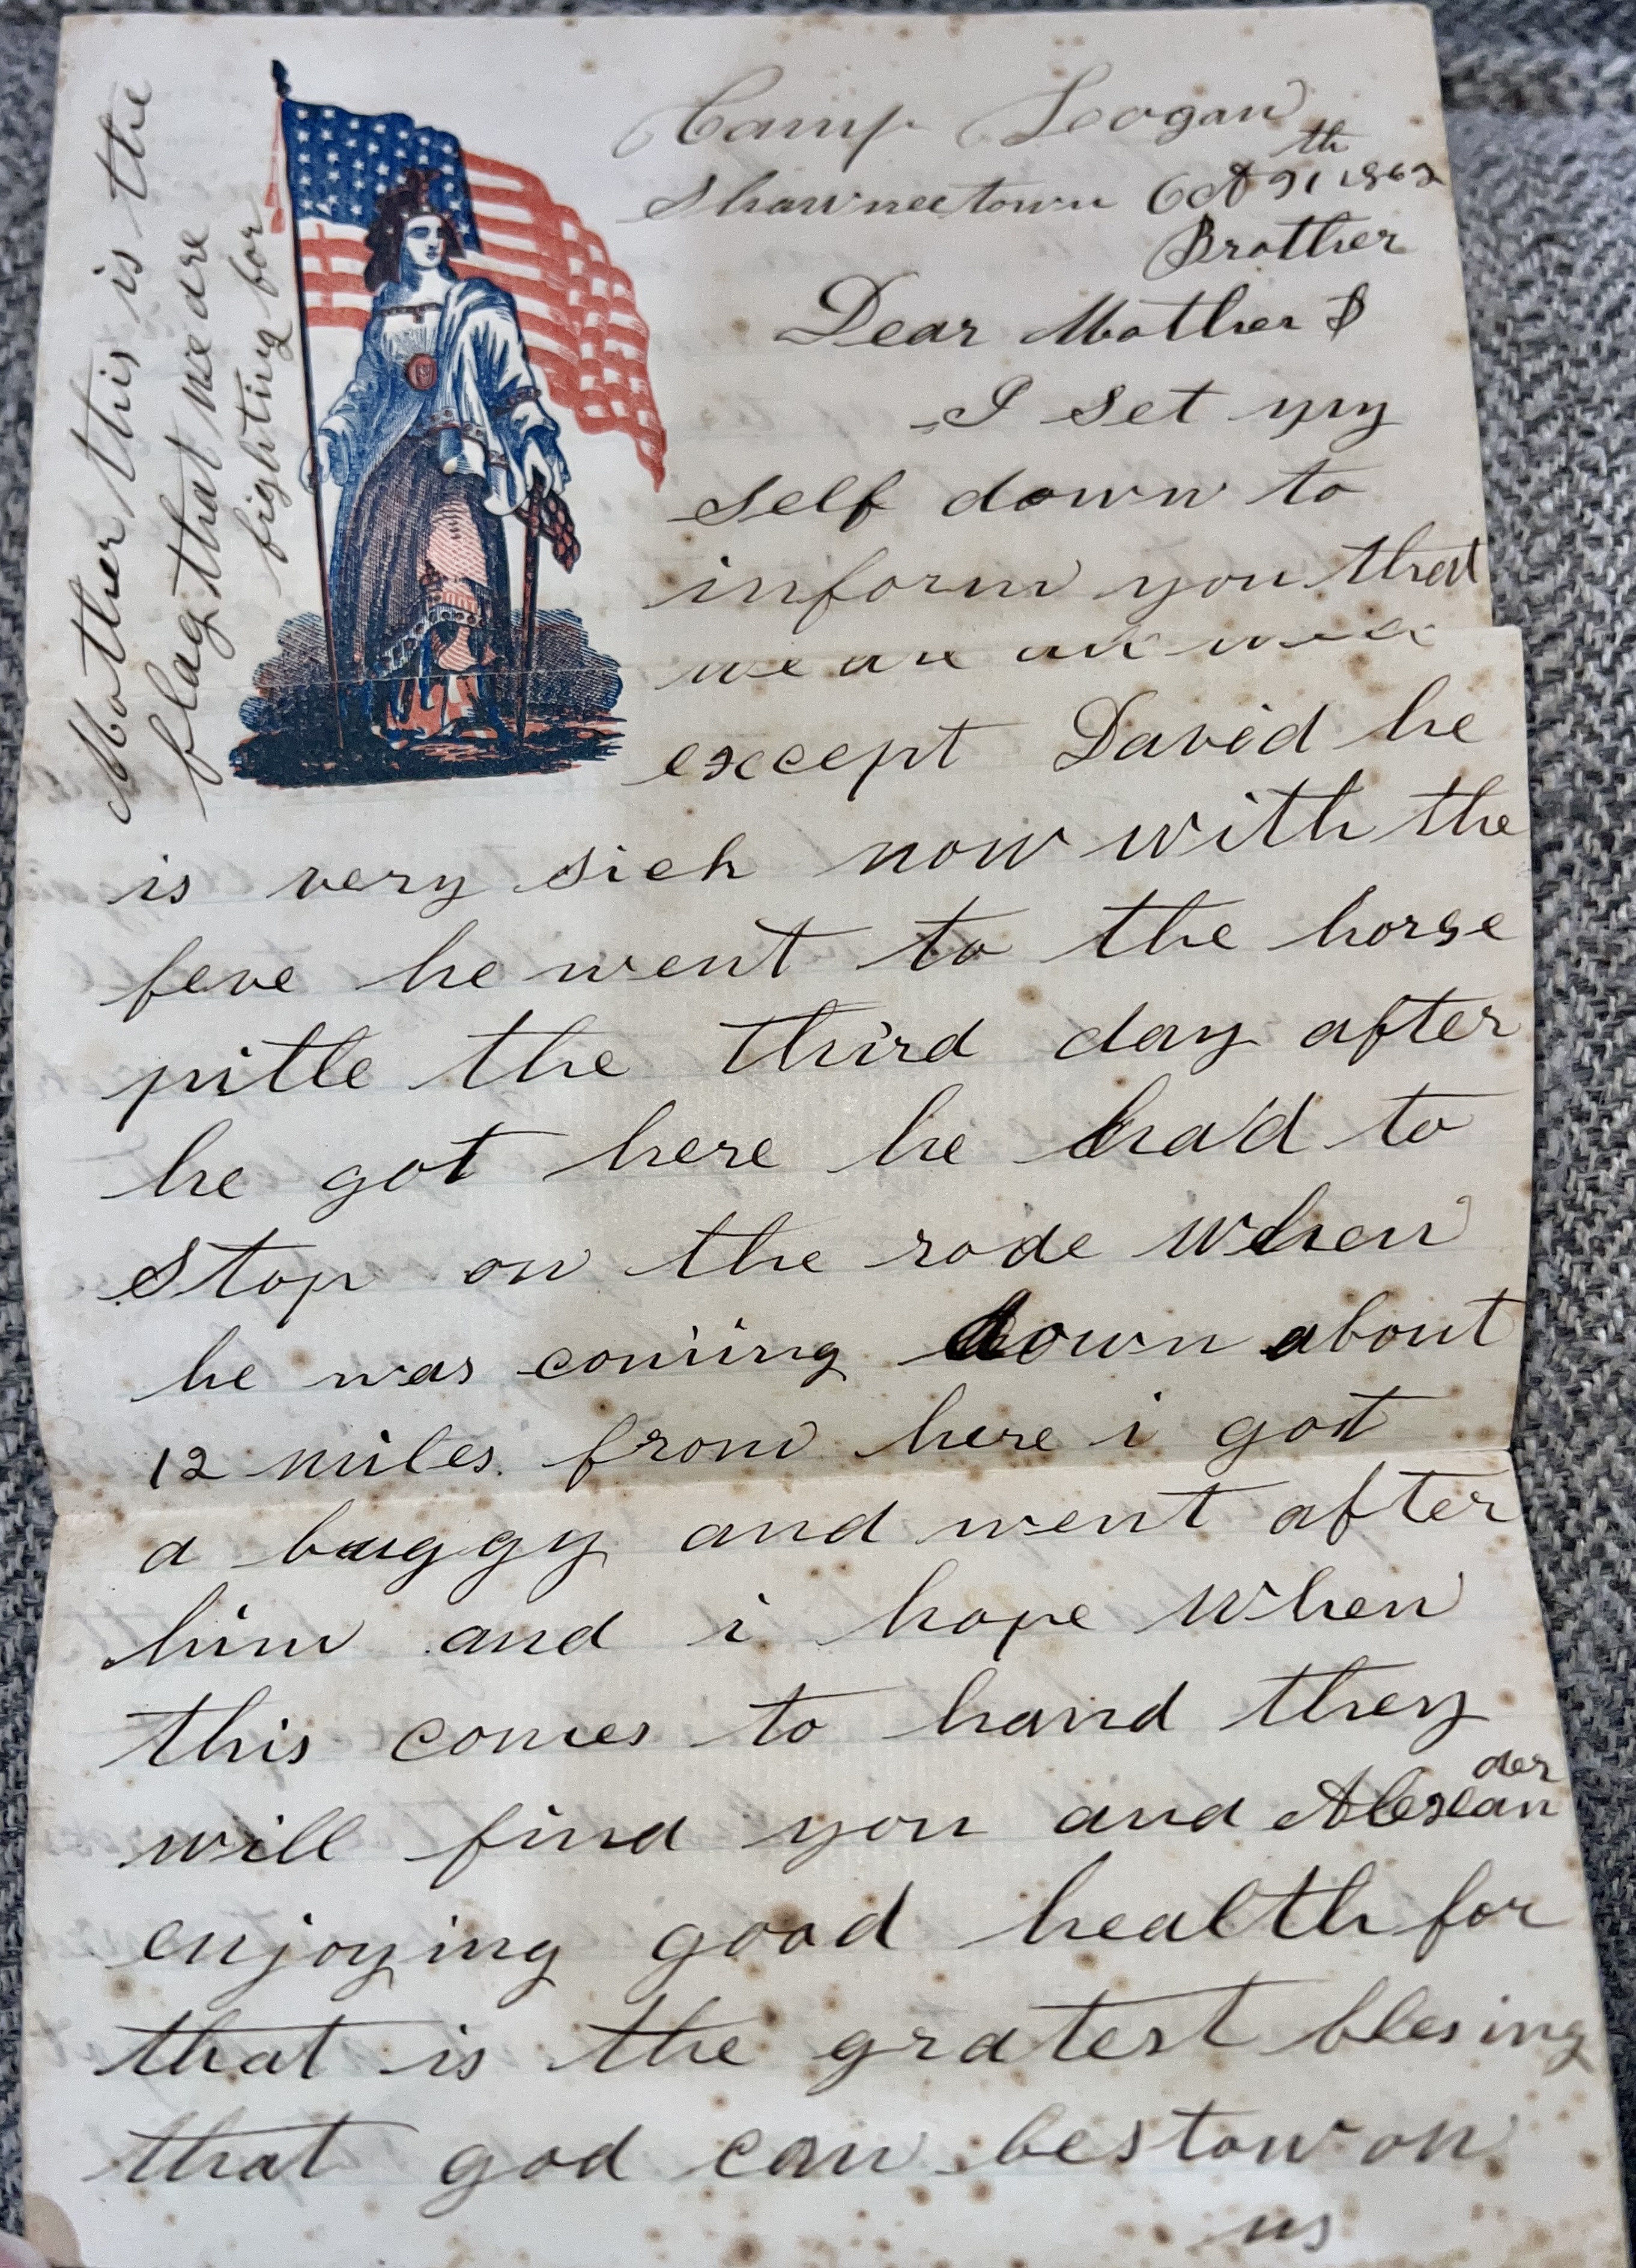 Mother this is the
flag that we are
fighting for
Camp Loogan
Shawneetown Oct 31th 1862
Brother
Dear Mother &
I set my
self down to
inform you that
we are all well
except David he
is very sick now with the
feve he went to the horse
pitle the third day after
he got here he had to
stop on the rode when
he was coming down about
12 miles. from here i got
a buggy and went after
him and i hope when
this comes to hand they
will find you and Alexander
enjoying good health for
that is the gratest blesing
that god can bestow on
us